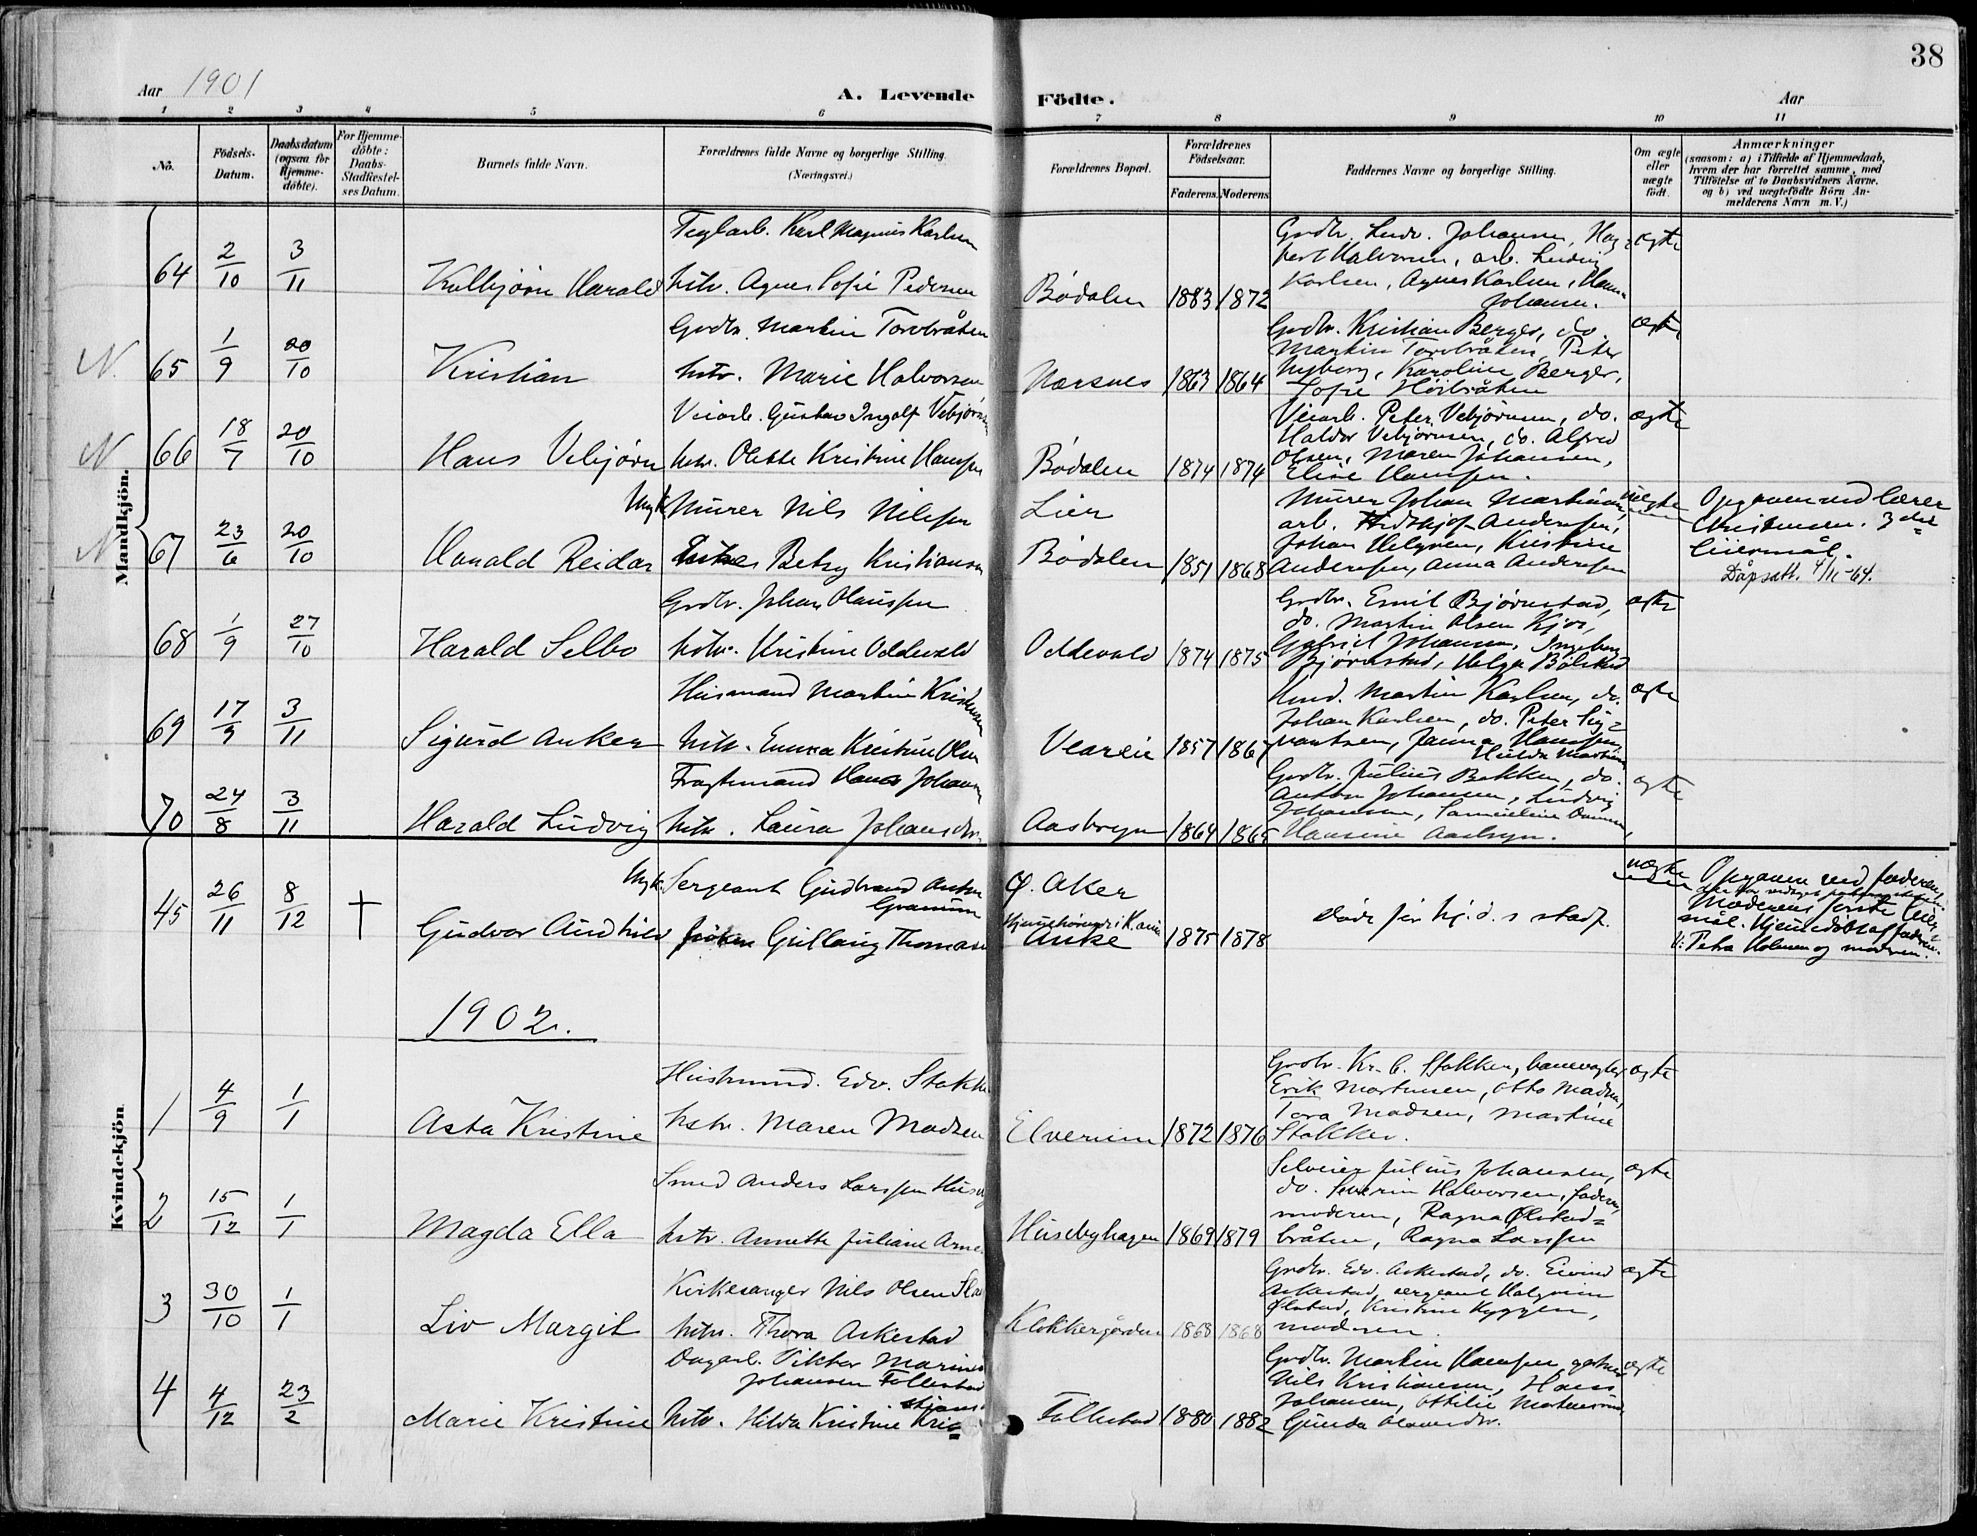 38
Aar 1901
A. Levende
Födte.
Aar
1 2 3 4 5 6 7 8 9 10 11
No.
Födsels-Datum.
Daabsdatum (ogsaa for Hjemme-döbte).
For Hjemme-döbte: Daabs-Stadfæstel-ses Datum.
Barnets fulde Navn.
Forældrenes fulde Navne og borgerlige Stilling.
(Næringsvei.)
Forældrenes Bopæl.
Forældrenes Födselsaar.
Faderens. Moderens.
Faddernes Navne og borgerlige Stilling.
Om ægte eller uægte födt.
Anmærkninger
(saasom: a) i Tilfælde af Hjemmedaab,
hvem der har forrettet samme, med
Tilföielse af to Daabsvidners Navne,
og b) ved uægtefödte Börn An-
melderens Navn m. V.)
Mandkjön.
64 2/10 3/11 Kolbjørn Harald
Teglarb. Karl Magnus Karlsen
hstr. Agnes Sofie Pedersen
Bødalen 1883 1872
Grdbr. Ludv. Johansen,
Halvorsen, arb. Ludvig
Karlsen, Agnes Karlsen,
Johansen.
ægte
N. 65 1/9 20/10 Kristian
Grdbr. Martin Torvbråten
hstr. Marie Halvorsen
Nærsnes 1863 1864
Grdbr. Kristian Berger, do.
Martin Torvbråten, Peter
Nyborg, Karoline Berger,
Sofie Høibråten
ægte
N 66 18/7 20/10 Hans Vebjørn
Veiarb. Gustav Ingolf Vebjørnsen
hstr. Olette Kristine Hansen
Bødalen 1874 1874
Veiarb. Peter Vebjørnsen, do.
Haldor Vebjørnsen, do. Alfred
Olsen, Maren Johansen,
Elise Hansen.
ægte
N 67 23/6 20/10 Harald Reidar
Ungk. Murer Nils Nilsen
Betsy Kristiansen
Lier
Bødalen 1851 1868
Murer Johan Martinsen,
arb. Andersen,
Johan Helgesen, Kristine
Andersen, Anna Andersen
uægte
Opgaven ved lærer
Christensen. 3die
leiermål.
Dåpsatt. 4/11-64.
68 1/9 27/10 Harald Selbo
Grdbr. Johan Olaussen
hstr. Kristine Oddevald
Oddevald 1874 1875
Grdbr. Emil Bjørnstad,
do. Martin Olsen Kjos,
Gabriel Johansen, Ingeborg
Bjørnstad, Helga Bølstad
ægte
69 17/9 3/11 Sigurd Anker
Husmand Martin Kristensen
hstr. Emma Kristine Olsen
1857 1867
Husmd. Martin Karlsen, do.
Johan Karlsen, do. Peter Sig-
vartsen, Janna Hansen,
Hulda Martinsen
ægte
70 24/8 3/11 Harald Ludvig
Fragtemand Hans Johansen
hstr. Laura Johansdtr.
Aasbryn 1864 1865
Grdbr. Julius Bakken, do.
Anton Johansen, Ludvig
Johansen,
Hansine Aasbryn.
ægte
Kvindekjön.
45 26/11 8/12 † Gudvor Audhild
Ungk. Sergeant Gudbrand Anton
Granum
frøken Gullaug Thomasen
Ø. Aker
Hjemmehørende i K.ania
Aske 1875 1878
døde før hj. d. s stadf.
uægte
Opgaven ved faderen,
Moderens første leier-
mål. Hjemdøbt af faderen.
V: Petra Holmen og moderen.
1902.
1 4/9 1/1 Asta Kristine
Husmand. Edv. Stokker
hstr. Maren Madsen
Elverum 1872 1876
Grdbr. Kr. C. Stokker, banevogter
Erik Mortensen, Otto Madsen,
Tora Madsen, Martine
Stokker.
ægte
2 15/12 1/1 Magda Ella
Smed Anders Larssen
hstr. Annette Juliane
Husebyhagen 1869 1879
Selveier Julius Johansen,
do. Severin Halvorsen, faderen,
moderen, Ragna Ølstad-
bråten, Ragna Larssen
ægte
3 30/10 1/1 Liv Margit
Kirkesanger Nils Olsen
hstr. Thora Askestad
Klokkergården 1868 1868
Grdbr. Edv. Askestad, do. Eivind
Askestad, sergeant Halgrim
Ølstad, Kristine Kyggen,
moderen.
ægte
4 4/12 23/2 Marie Kristine
Dagarb. Viktor Marinus
Johansen Follestad
hstr. Hilda Kristine Kris-
tians
Follestad 1880 1882
Grdbr. Martin Hansen,
Nils Kristiansen, Hans
Johansen, Ottilie
Gunda
ægte